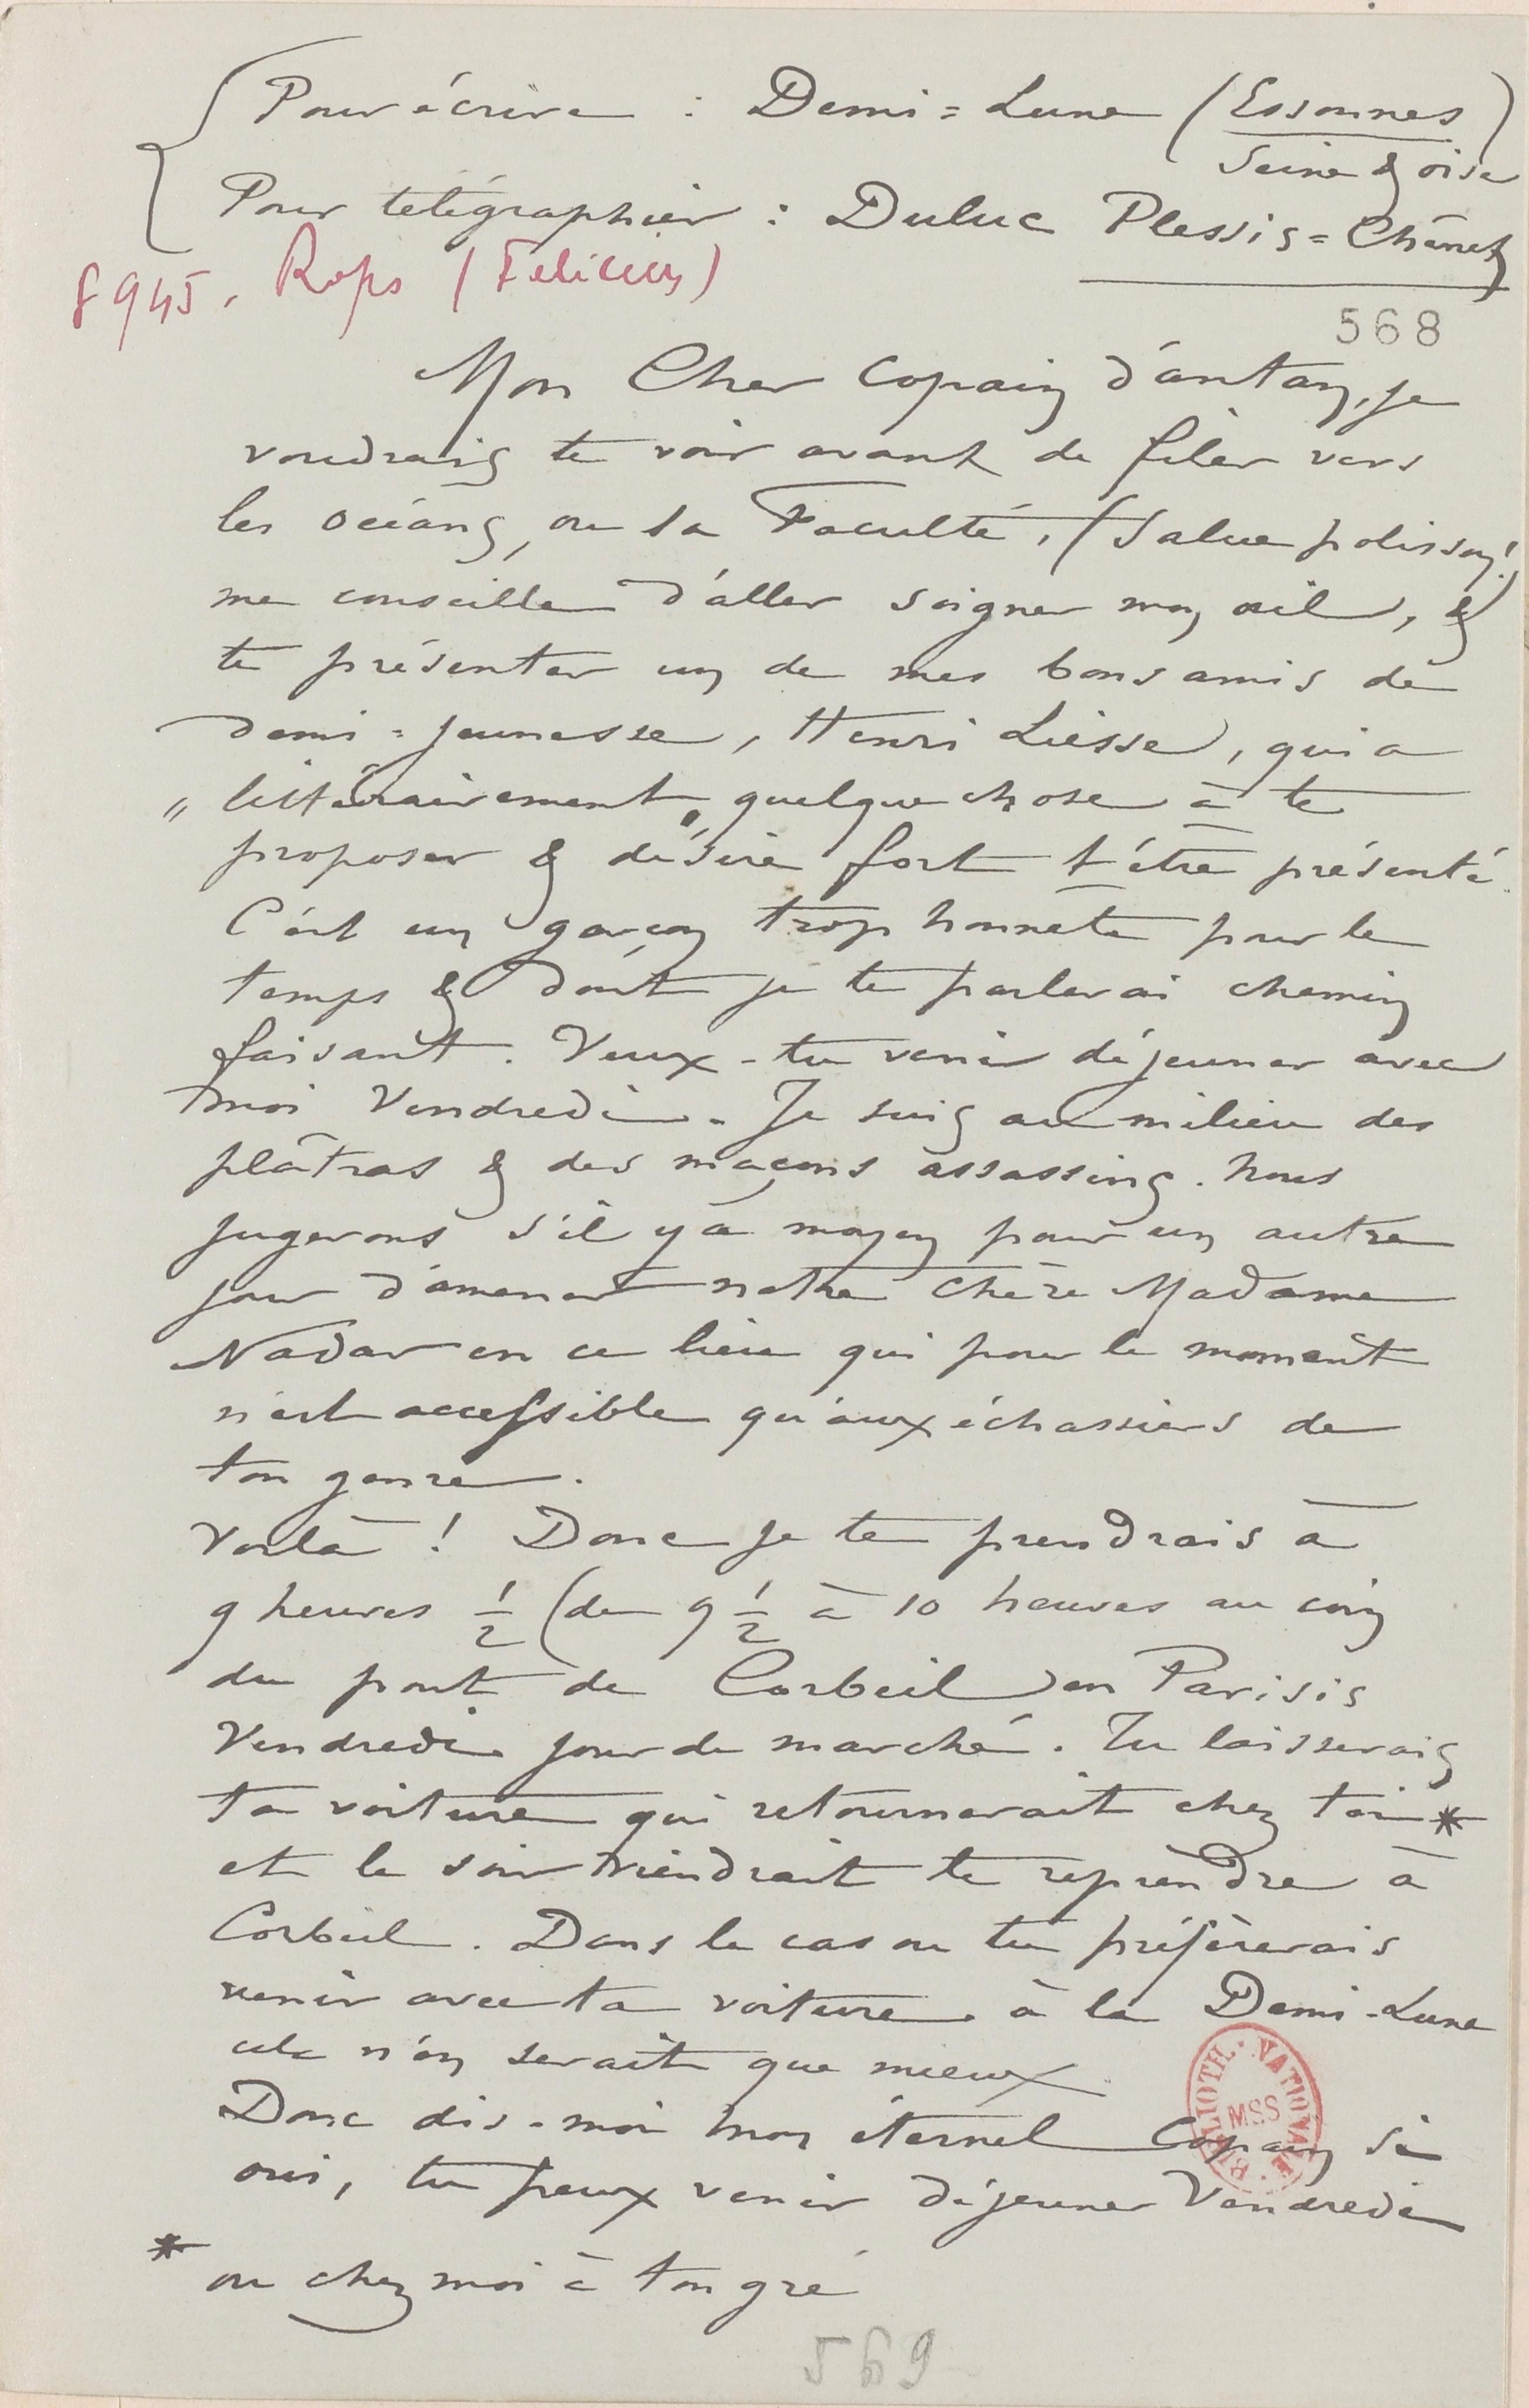 Pour écrire : Demi=Lune (Essonnes)
Seine & oise
Pour télégraphier : Duluc Plessis=Chênet
8945. Rops (Félicien)
568
Mon Cher Copain d'antan, je
voudrais te voir avant de filer vers
les océans, ou la Faculté, (Salue polisson!)
me conseille d'aller soigner mon œil, &
te présenter un de mes bons amis de
demi=jeunesse, Henri Liesse, qui a
"littérairement" quelque chose à te
proposer & désire fort t'être présenté.
C'est un garçon trop honnête pour le
temps & dont je te parlerai chemin
faisant. Veux-tu venir déjeuner avec
moi Vendredi. Je suis au milieu des
plâtras & des maçons assassins. Nous
jugerons s'il y a moyen pour un autre
jour d'amener notre chère Madame
Nadar en ce lieu qui pour le moment
n'est accessible qu'aux échassiers de
ton genre.
Voilà ! Donc je te prendrais à
9 heures 1/2 (de 9 1/2 à 10 heures au coin
du pont de Corbeil) en Parisis
Vendredi jour de marché. Tu laisserais
ta voiture qui retournerait chez toi *
et le soir viendrait te reprendre à
Corbeil. Dans le cas ou tu préfèrerais
venir avec ta voiture à la Demi-Lune
cela n'en serait que mieux
Donc dis-moi mon éternel Copain si
oui, tu peux venir déjeuner Vendredi
* ou chez moi à ton gré
BIBLIOTH. NATIONALE MSS
569